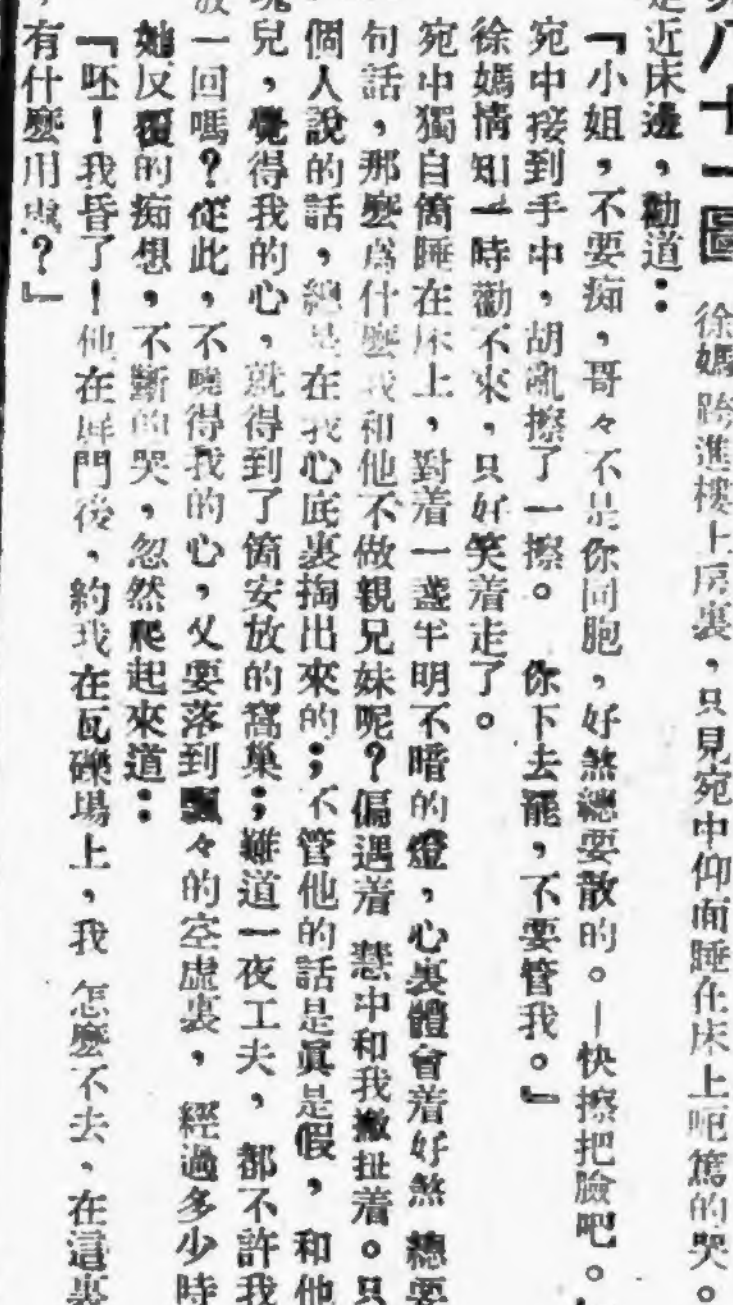 八十一圖　徐媽跨進樓上房裏，只見宛中仰面睡在床上呃篤的哭。
近床邊，勸道：
『小姐，不要痴，哥々不是你同胞，好煞總要散的。—快擦把臉吧。
宛中接到手中，胡亂擦了一擦。　你下去罷，不要管我。』
徐媽情知一時勸不來，只好笑着走了。
宛中獨自箇睡在床上，對着一盞半明不暗的燈，心裏體會着好煞總要
句話，那麼爲什麼我和他不做親兄妹呢？偏遇着慧中和我撇扭着。只
個人說的話，總是在我心底裏掏出來的；不管他的話是眞是假，和他
兒，覺得我的心，就得到了箇安放的窩巢；難道一夜工夫，都不許我
一回嗎？從此，不曉得我的心，又要落到飄々的空虛裏，經過多少時
她反覆的痴想，不斷的哭，忽然爬起來道：
『呸！我昏了！他在屛門後，約我在瓦礫場上，我怎麼不去，在這裏
有什麼用處？』